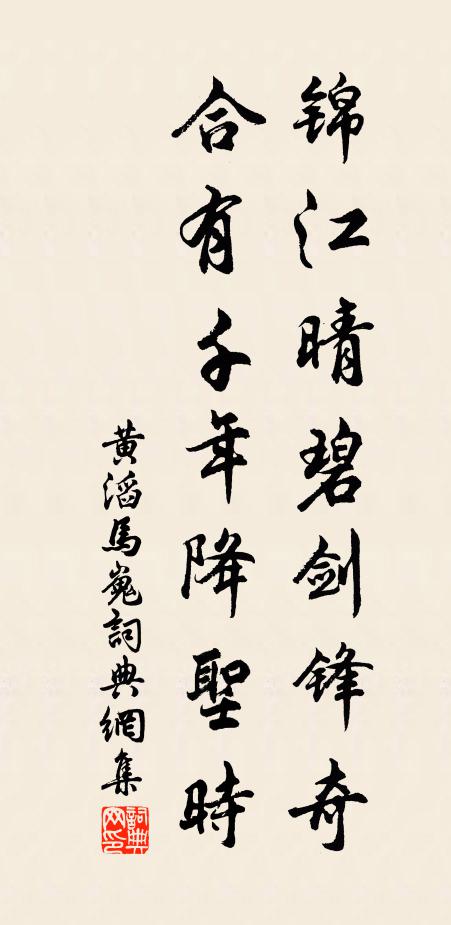 锦江晴碧剑锋奇
合有千年降聖時
黄滔馬嵬詞典網集
詞典网印